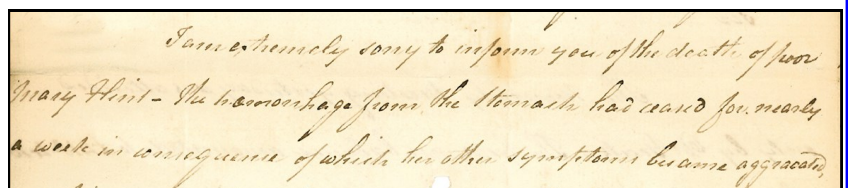 I am extremely sorry to inform you of the death of poor
Mary Flint - The hæmorrhage from the Stomach had ceased for nearly
a week in consequence of which her other symptoms became aggravated,